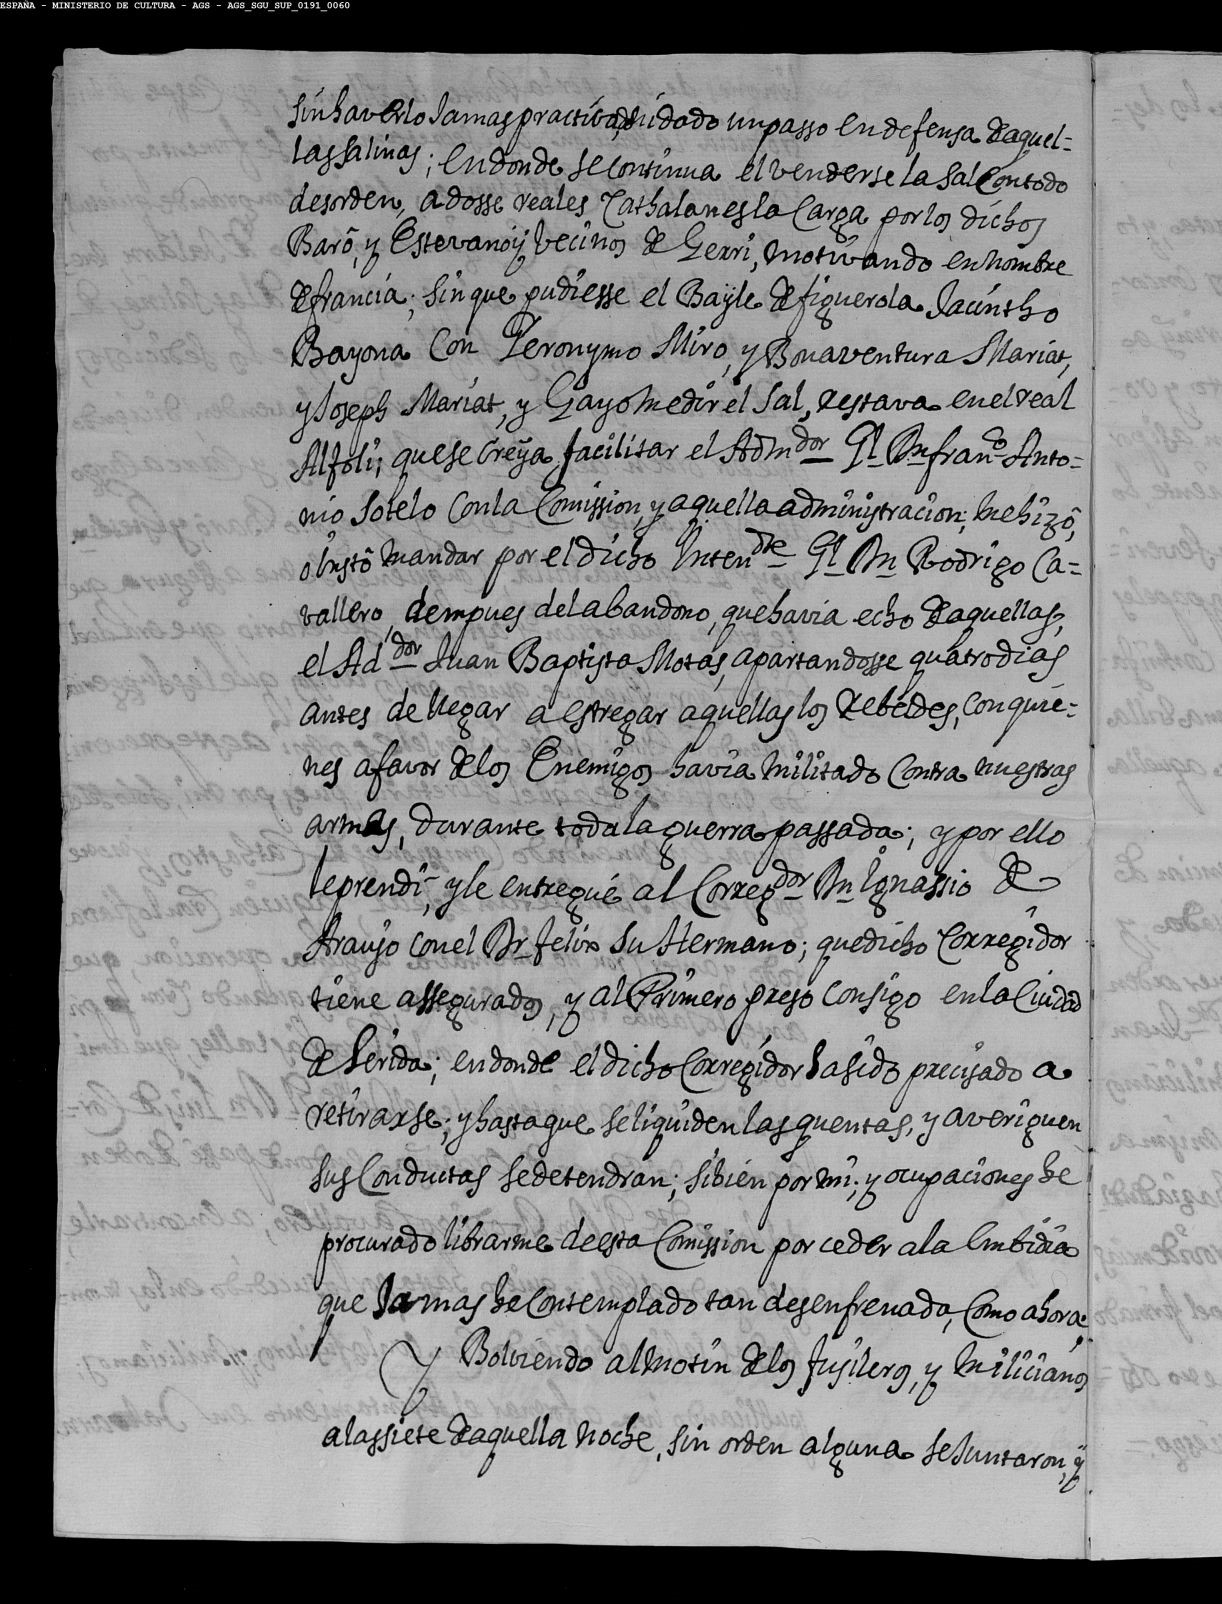 ESPAÑA - MINISTERIO DE CULTURA - AGS - AGS_SGU_SUP_0191_0060
sin haverlo Jamas practicado, ni dado un passo en defensa de aquel=
las salinas; en donde se continua el venderse la sal con todo
desorden, a dosse reales Cathalanes la Carga por los dichos
Baró, y Estevanoÿ vecinos de Gerri, motivando en nombre
de francia; sin que pudiesse el Bayle de figuerola Jacintho
Bayona Con Geronymo Miro, y Bonaventura Mariat,
y Joseph Mariat, y Gayo medir el Sal, restava en el real
Alfoli; que se creÿa facilitar el Admdor Gl Dn franco Anto=
nio Sotelo con la Comission, y aquella administracion; me hizó,
o instó mandar por el dicho Intendte Gl Dn Rodrigo Ca=
vallero, dempues del abandono, que havia echo de aquellas,
el Addor Juan Baptista Motas, apartandosse quatro dias
antes de llegar a estregar aquellas los Rebeldes, con quie=
nes a favor de los Enemigos havia militado contra nuestras
armas, durante toda la guerra passada; y por ello
le prendi, y le entregué al Corregdor Dn Ignassio de
Araujo con el Dr felix su Hermano; que dicho Corregidor
tiene assegurados, y al Primero preso consigo en la Ciudad
de Lerida; en donde el dicho Corregidor ha sido precisado a
retirarse; y hasta que se liquiden las quentas, y averiguen
sus Conductas se detendran; si bien por mi; y ocupaciones he
procurado librarme de esta Comission por ceder a la Imbidia
que Jamas he contemplado tan desenfrenada, Como ahora.
Y Bolviendo al motin de los fusileros, y miliciános
a las siete de aquella noche, sin orden alguna se Juntaron, ÿ